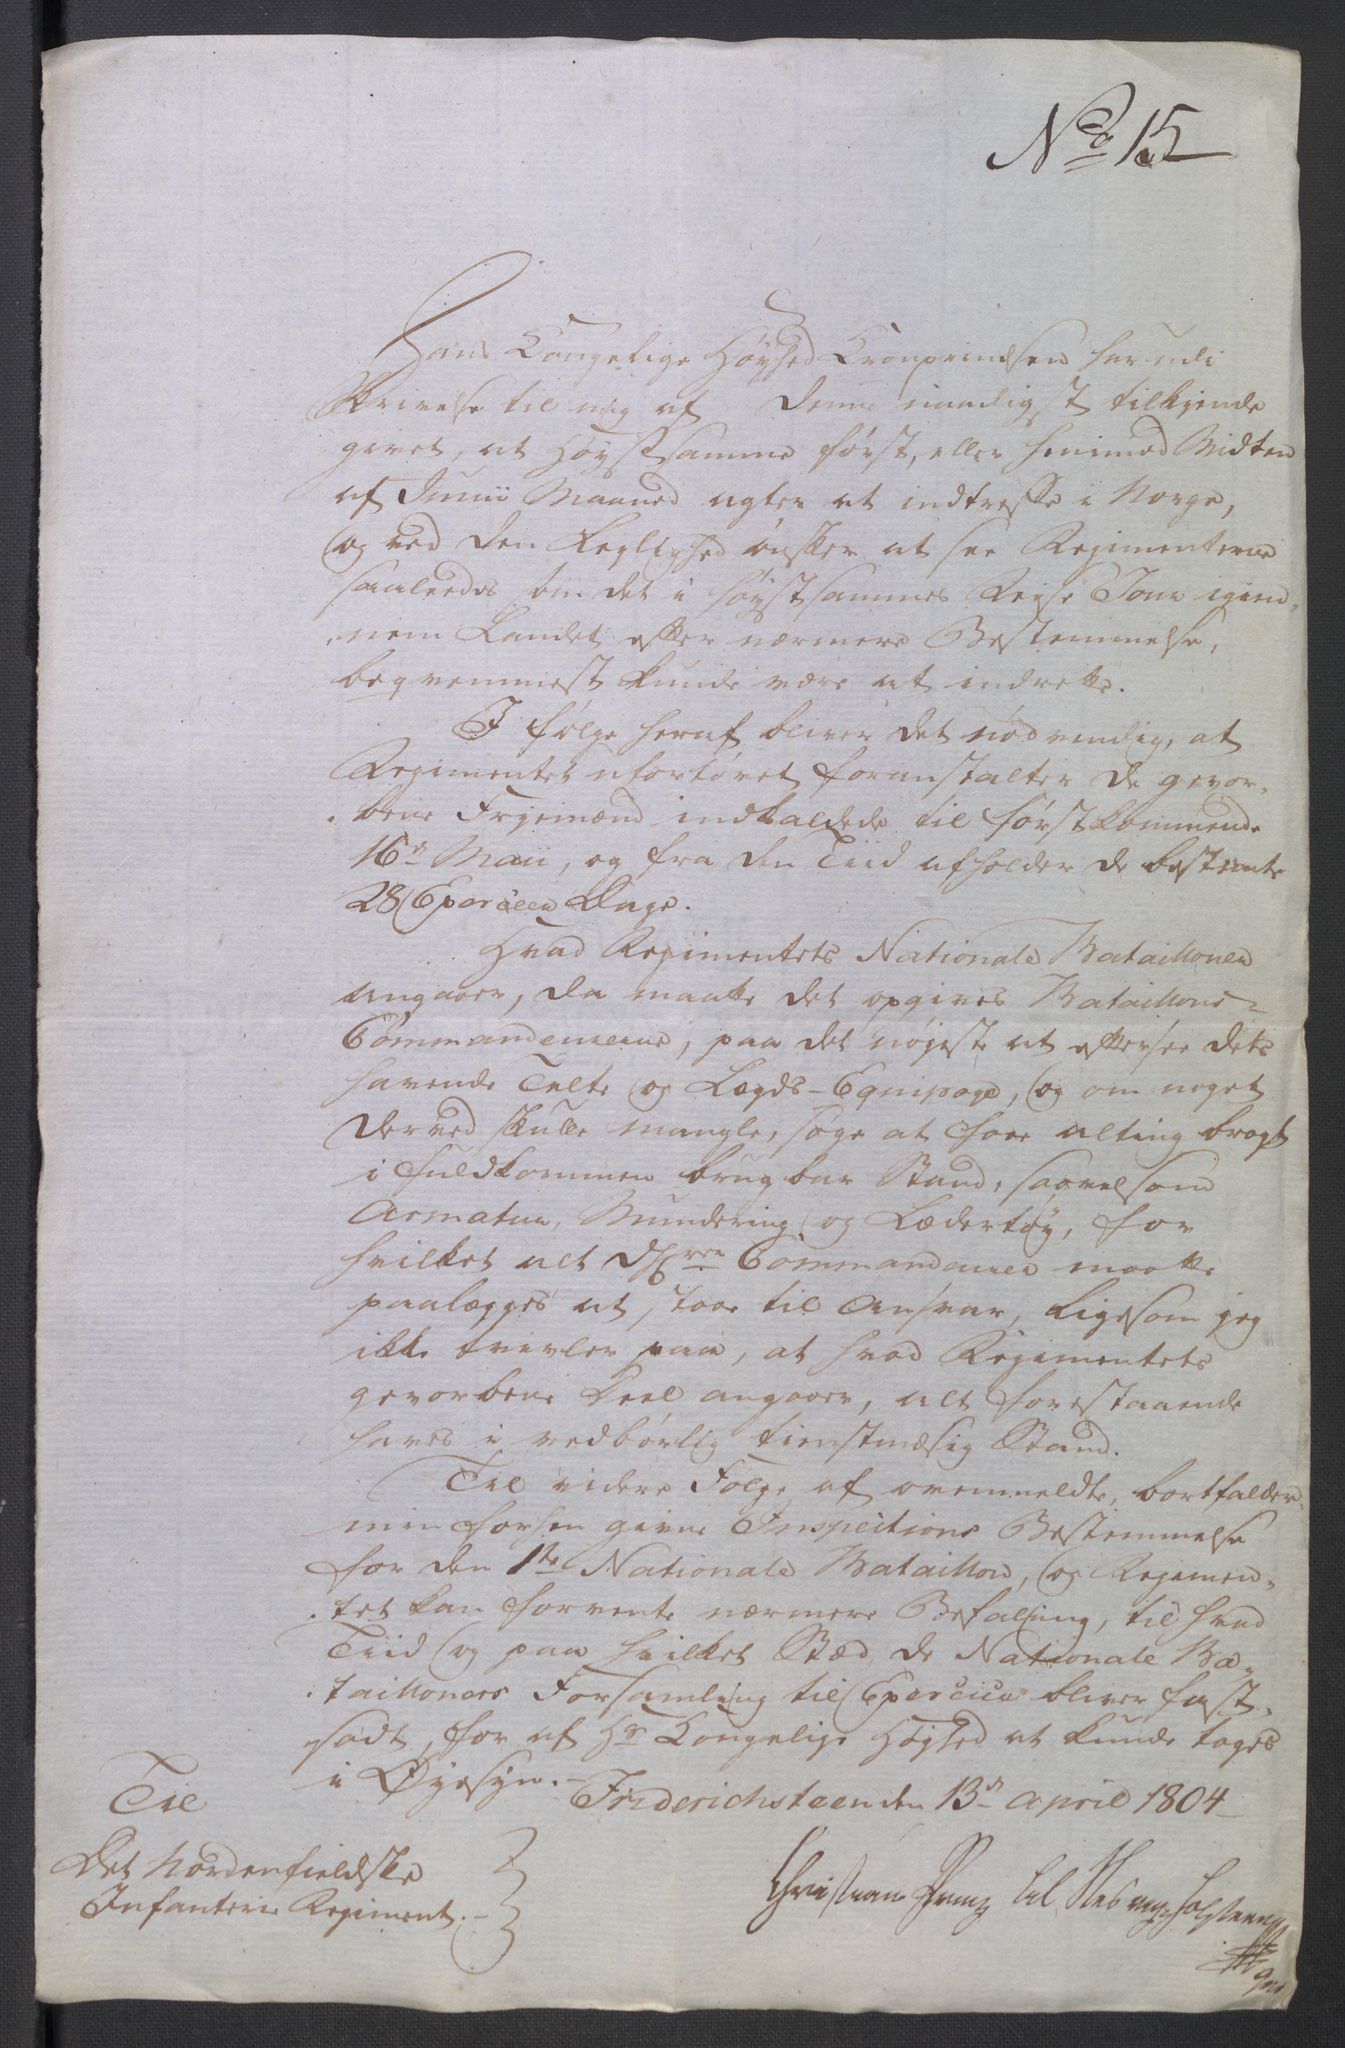 No 15
Hans Kongelige Høyhed Kronprindsen har udi
Skrivelse til mig af Denne naadigst tilkjende
givet, at Høystsamme først, eller henimod Midten
af Junii Maaned agter at indtreffe i Norge,
og ved den Leylighed ønsker at see Regimenterne
saaledes som det i Høystsammes Reise Tour igien-
nem Landet efter nærmere Bestemmelse,
beqvemmest kunde være at indrette.
I følge heraf bliver det nødvendig, at
Regimentet ufortøvet foranstalter de gevor-
bene Frejemænd indkaldede til førstkommende
16de Maii, og fra den Tiid afholder de bestemte
28 Exercier Dage.
Hvad Regimentets Nationale Batailloner
angaaer, da maatte det opgives Bataillons-
Commandeurerne, paa det nøjeste at eftersee dets
havende Telte og Lægds-Equipage, og om noget
derved skulle mangle, søge at faae alting bragt
i fuldkommen brugbar Stand, saavelsom
Armatur, Mundering og Lædertøy, for
hvilket alt Commandeurer maatte
paalægges at staae til Ansvar, ligesom jeg
ikke tvivler paa, at hvad Regimentets
gevorbene Deel angaaer, alt forestaaende
haves i vedbørlig tienstmæsig Stand.
Til videre Følge af ovenmeldte, bortfalder
min forhen givne Inspections Bestemmelse
for den 1te Nationale Bataillon, og Regimen-
tet kan forvente nærmere Befaling, til hvad
Tiid og paa hvilket Stæd de Nationale Ba-
tailloners Forsamling til Exercice bliver fast-
sadt, for af Hs Kongelige Høyhed at kunde tages
i Øyesyn.-
Friderichsteen den 13de April 1804
Til
Det Nordenfieldske
Infanterie Regiment.-
Christian Prinz til Hessen